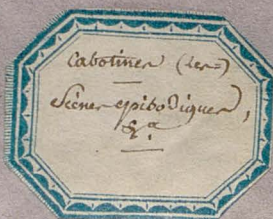 Cabotines (les)
Scènes épisodiques,
&a.